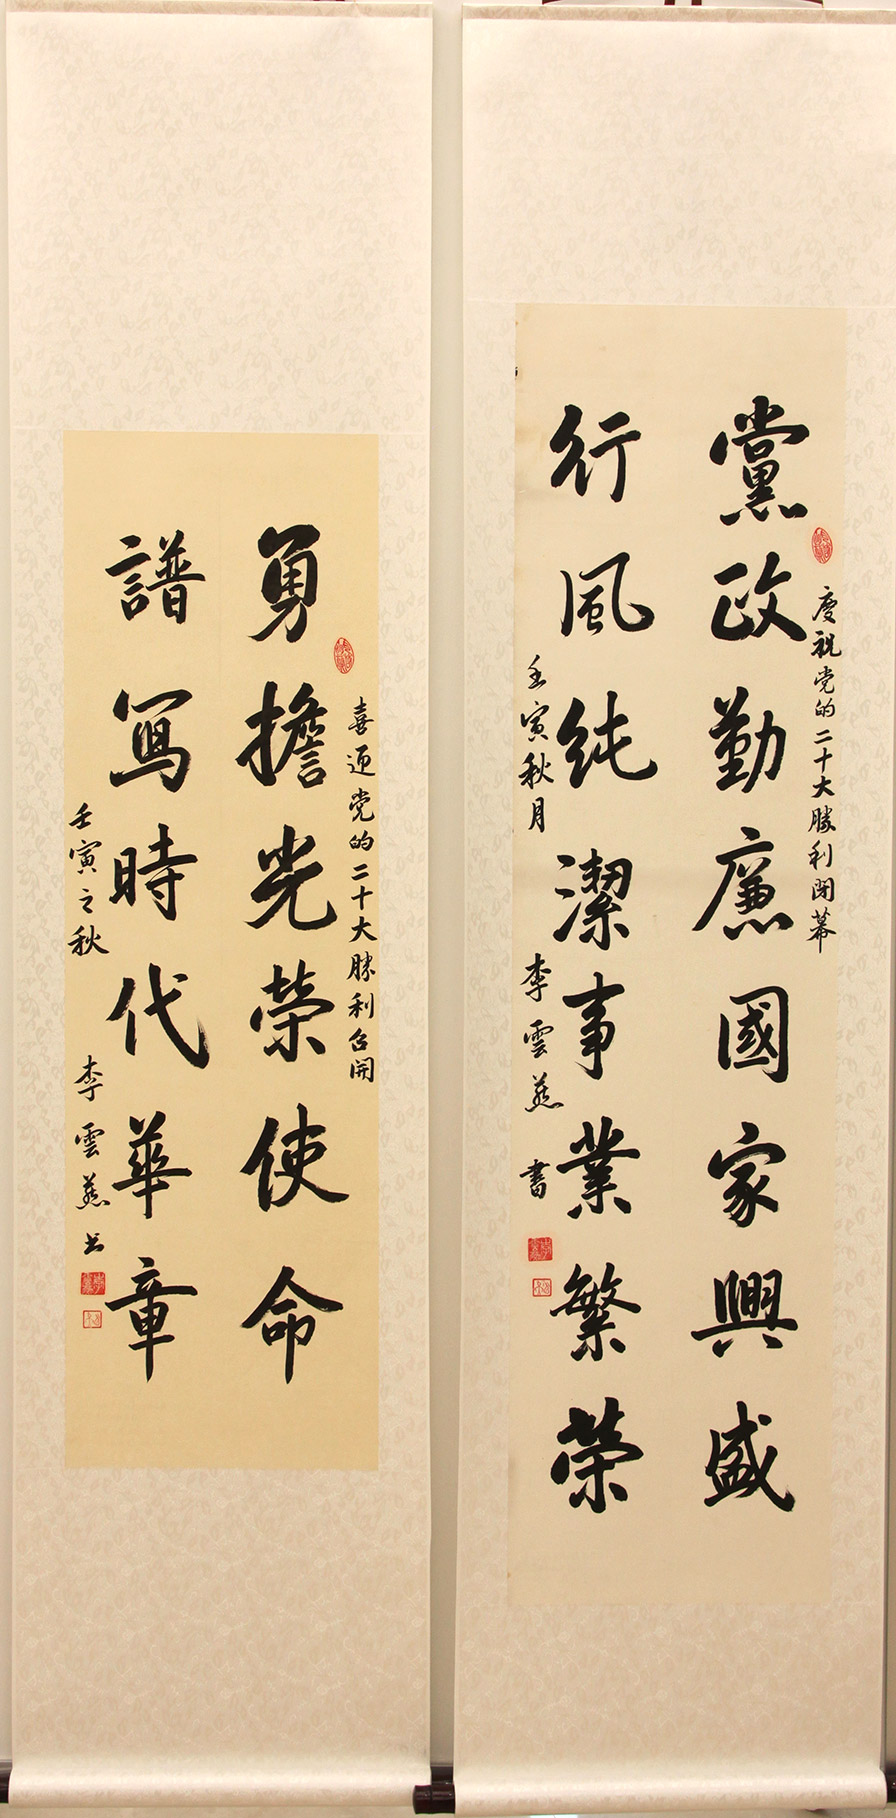 慶祝党的二十大勝利闭幕
黨政勤廉國家興盛
行風純潔事業繁榮
壬寅秋月 李雲燕 書
喜迎党的二十大勝利召開
勇擔光榮使命
譜寫時代華章
壬寅之秋 李雲燕书